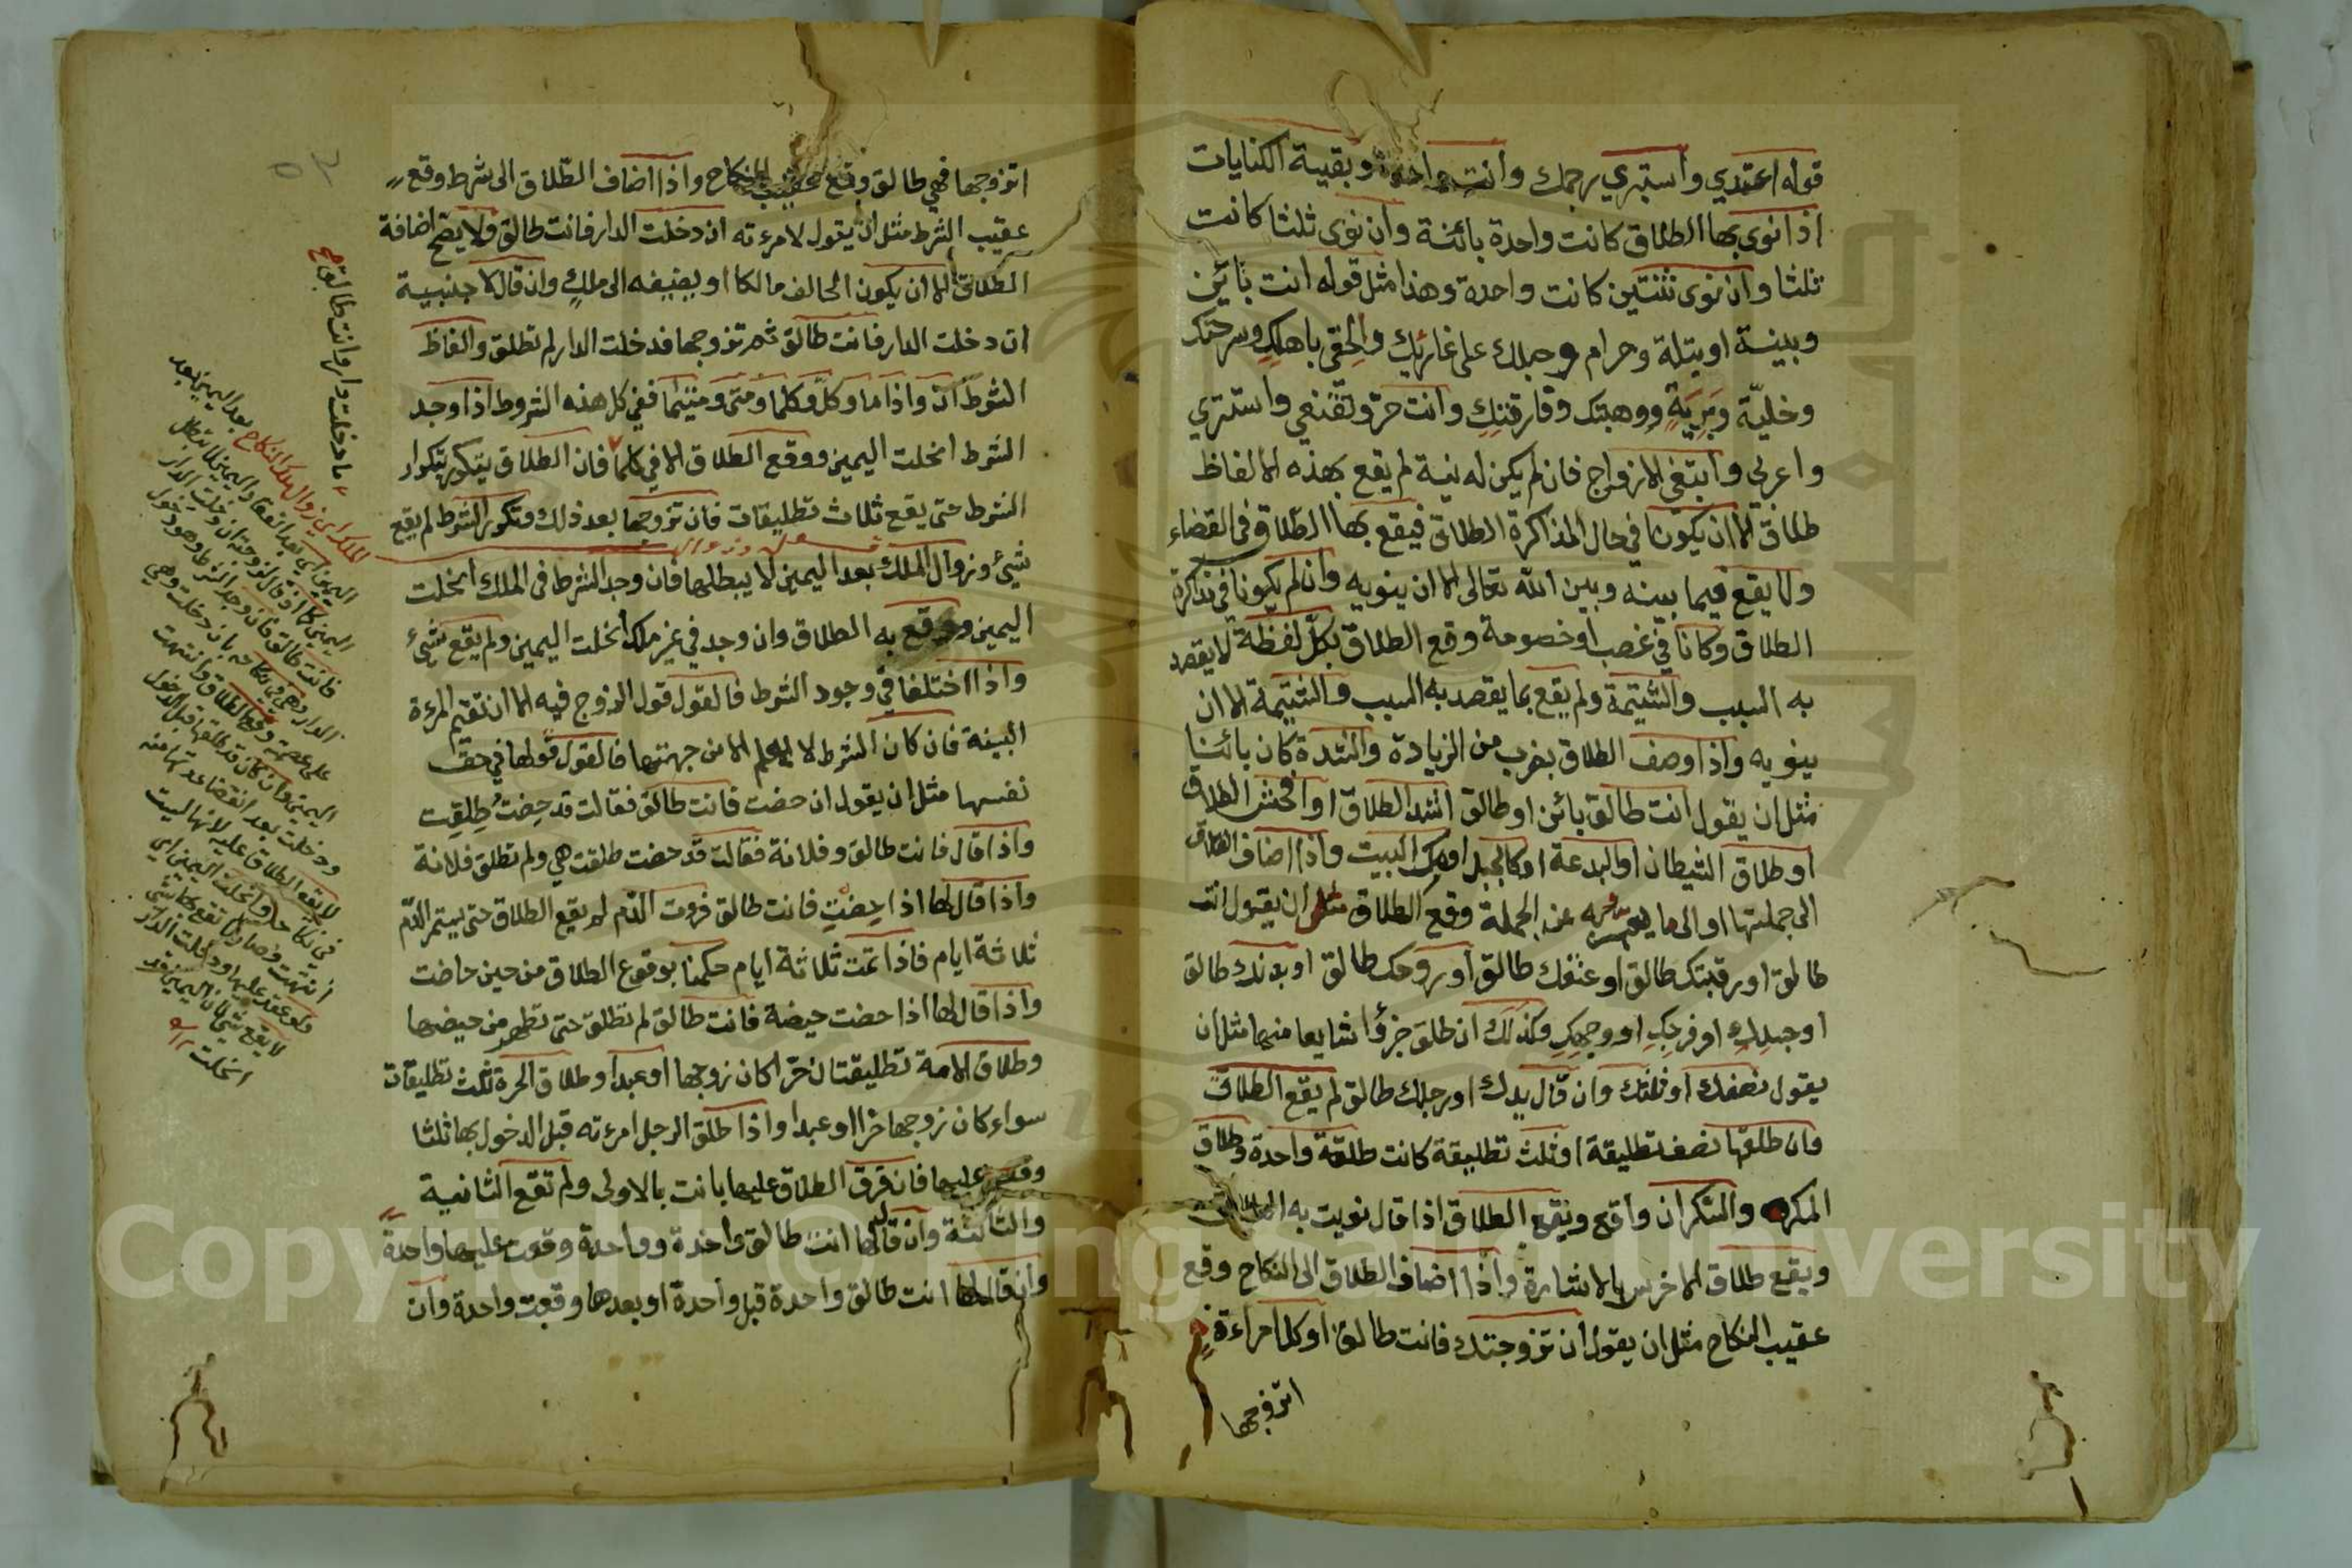 قوله اعتدي واستبري رحمك وانت واحدة وبقية الكنايات
اذا نوى بها الطلاق كانت واحدة بائنة وان نوى ثلثا كانت
ثلثا وان نوى ثنتين كانت واحدة وهذا مثل قوله انت بائن
وبينة او بتلة وحرام وحبلك على غاربك والحقي باهلك وسرحتك
وخليّة وبرية ووهبتك وفارقتك وانت حرّ وتقنعي واستتري
واعزبي وابتغي الازواج فان لم يكن له نية لم يقع بهذه الالفاظ
طلاق الا ان يكونا في حال المذاكرة الطلاق فيقع بها الطلاق في القضاء
ولا يقع فيما بينه وبين الله تعالى الا ان ينويه وان لم يكونا في تذاكرة
الطلاق وكانا في غصب او خصومة وقع الطلاق بكلّ لفظة لا يقصد
به السبب والشتيمة ولم يقع بما يقصد به السبب والشتيمة الا ان
ينويه واذا وصف الطلاق بضرب من الزيادة والشدة كان بائنا
مثل ان يقول انت طالق بائن او طالق اشد الطلاق او افحش الطلاق
او طلاق الشيطان او البدعة او كالجبل او ملء البيت واذا اضاف الطلاق
الى جملتها او الى ما يعبر به عن الجملة وقع الطلاق مثل ان يقول انت
طالق او رقبتك طالق او عنقك طالق او روحك طالق او بدنك طالق
او جسدك او فرجك او وجهك وكذلك ان طلق جزؤا شايعا منها مثل ان
يقول نصفك او ثلثك وان قال يدك او رجلك طالق لم يقع الطلاق
وان طلقها نصف تطليقة او ثلث تطليقة كانت طلقة واحدة وطلاق
المكره والسكران واقع ويقع الطلاق اذا قال نويت به الطلاق
ويقع طلاق الاخرس بالاشارة واذا اضاف الطلاق الى النكاح وقع
عقيب النكاح مثل ان يقول ان تزوجتك فانت طالق او كل امراءة
اتزوجها
اتزوجها فهي طالق وقع عقيب النكاح واذا اضاف الطلاق الى شرط وقع
عقيب الشرط مثل ان يقول لامرءته ان دخلت الدار فانت طالق ولا يصح اضافة
الطلاق الا ان يكون الحالف مالكا او يضيفه الى ملك وان قال لاجنبية
ان دخلت الدار فانت طالق ثم تزوجها فدخلت الدار لم تطلق والفاظ
الشرط ان واذا ما وكل وكلما ومتى ومتيما ففي كل هذه الشروط اذا وجد
الشرط انحلت اليمين ووقع الطلاق الا في كلما فان الطلاق يتكرر بتكرار
الشرط حتى يقع ثلاث تطليقات فان تزوجها بعد ذلك وتكرر الشرط لم يقع
شيء وزوال الملك بعد اليمين لا يبطلها فان وجد الشرط في الملك انحلت
اليمين ووقع به الطلاق وان وجد في غير ملك انحلت اليمين ولم يقع شيء
واذا اختلفا في وجود الشرط فالقول قول الزوج فيه الا ان تقيم المرءة
البينة فان كان الشرط لا يعلم الا من جهتها فالقول قولها في حق
نفسها مثل ان يقول ان حضت فانت طالق فقالت قد حضت طلقت
واذا قال فانت طالق وفلانة فقالت قد حضت طلقت هي ولم تطلق فلانة
واذا قال لها اذا حضت فانت طالق فروت الدم لم يقع الطلاق حتى يستمر الدم
ثلاثة ايام فاذا تمت ثلاثة ايام حكمنا بوقوع الطلاق من حين حاضت
واذا قال لها اذا حضت حيضة فانت طالق لم تطلق حتى تطهر من حيضها
وطلاق الامة تطليقتان حرّا كان زوجها او عبدا وطلاق الحرة ثلث تطليقات
سواء كان زوجها حرا او عبدا واذا طلق الرجل امرءته قبل الدخول بها ثلثا
وقعن عليها فان فرق الطلاق عليها بانت بالاولى ولم تقع الثانية
والثالثة وان قال لها انت طالق واحدة وواحدة وقعت عليها واحدة
وان قال لها انت طالق واحدة قبل واحدة او بعدها وقعت واحدة وان
ما دخلت دار وانت طالق
الملك اي زوال ملك النكاح بعد اليمين بعد
اليمين اي بعد انعقاد اليمين لا تبطل
اليمين كما اذا قال لزوجته ان دخلت الدار
فانت طالق فان وجد الشرط وهو دخول
الدار وهي في نكاحه بان دخلت وهي
على عصمته وقع الطلاق وانتهت
اليمين وان كان قد طلقها قبل الدخول
ودخلت بعد انقضاء عدتها منه
لا يقع الطلاق عليه لانها ليست
في نكاحه وانحلت اليمين اي
انتهت
ولو عقد عليها ودخلت الدار
لا يقع شيء لان اليمين قد
انحلت
٥٣
Copyright © King Saud University